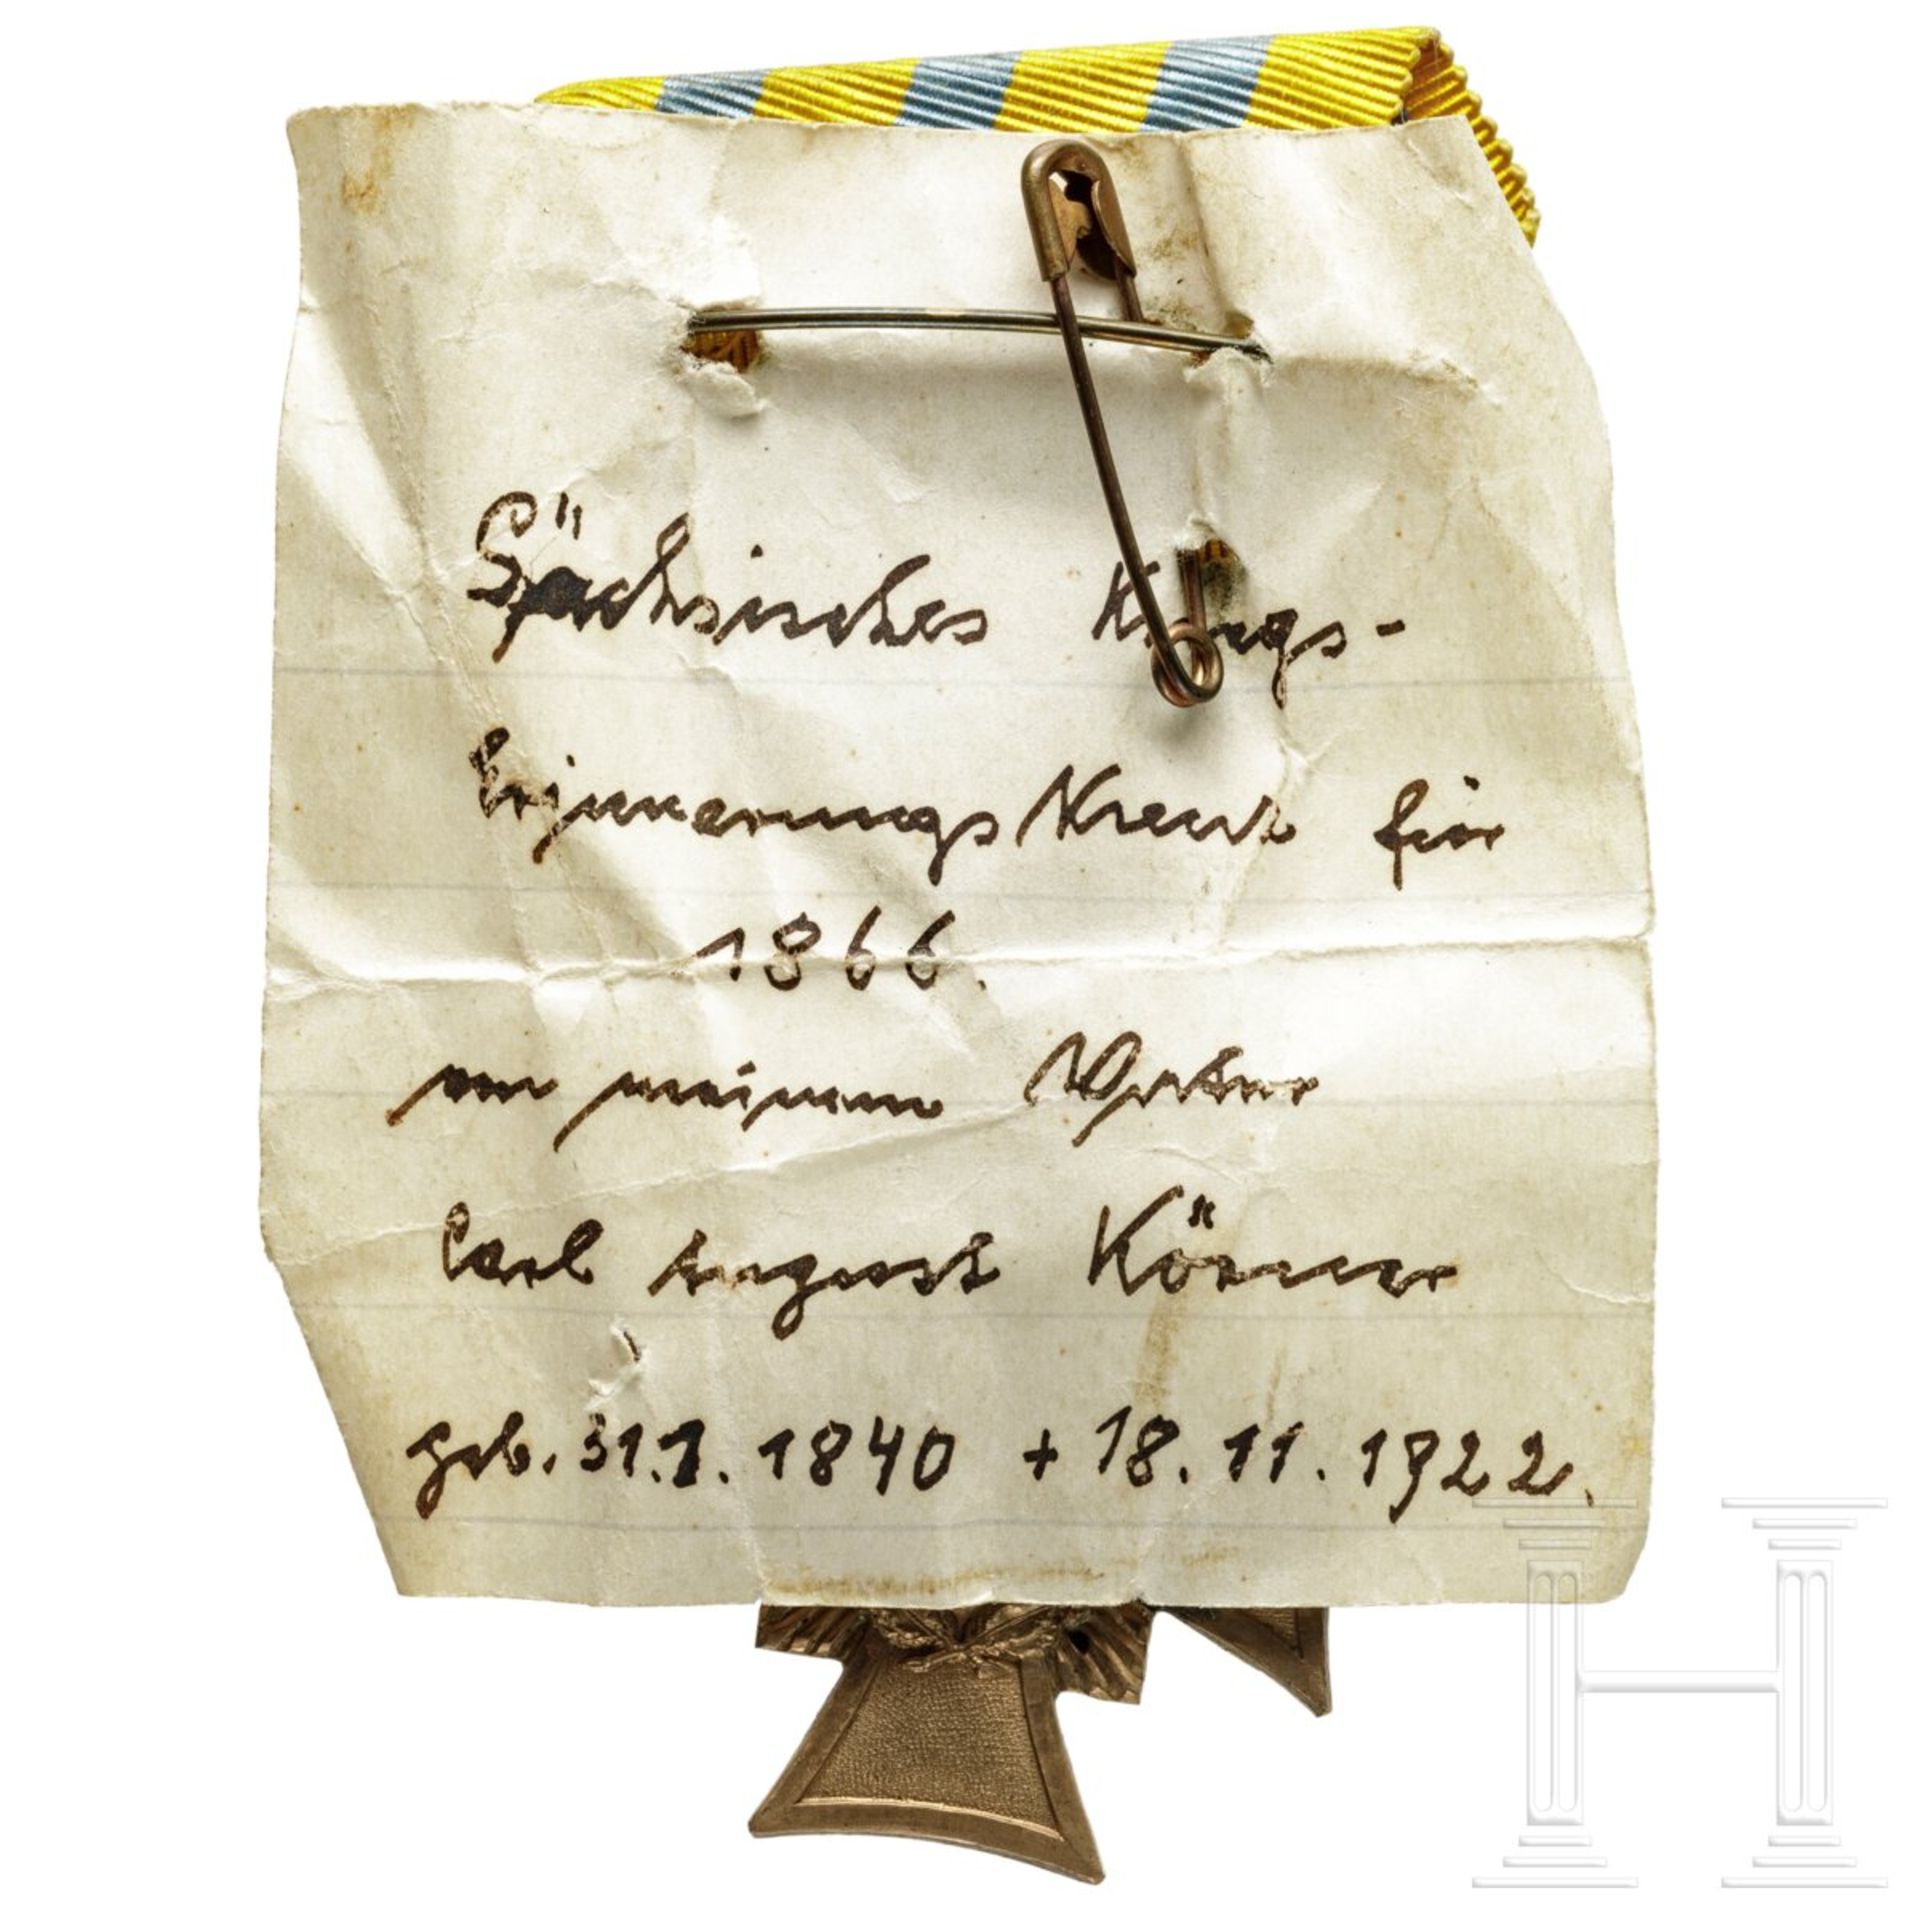 Sächsisches Kriegs-
Erinnerungs Kreuz für
1866.
von meinem Vater
Carl August Körner
geb. 31.1. 1840 + 18.11.1922.
H